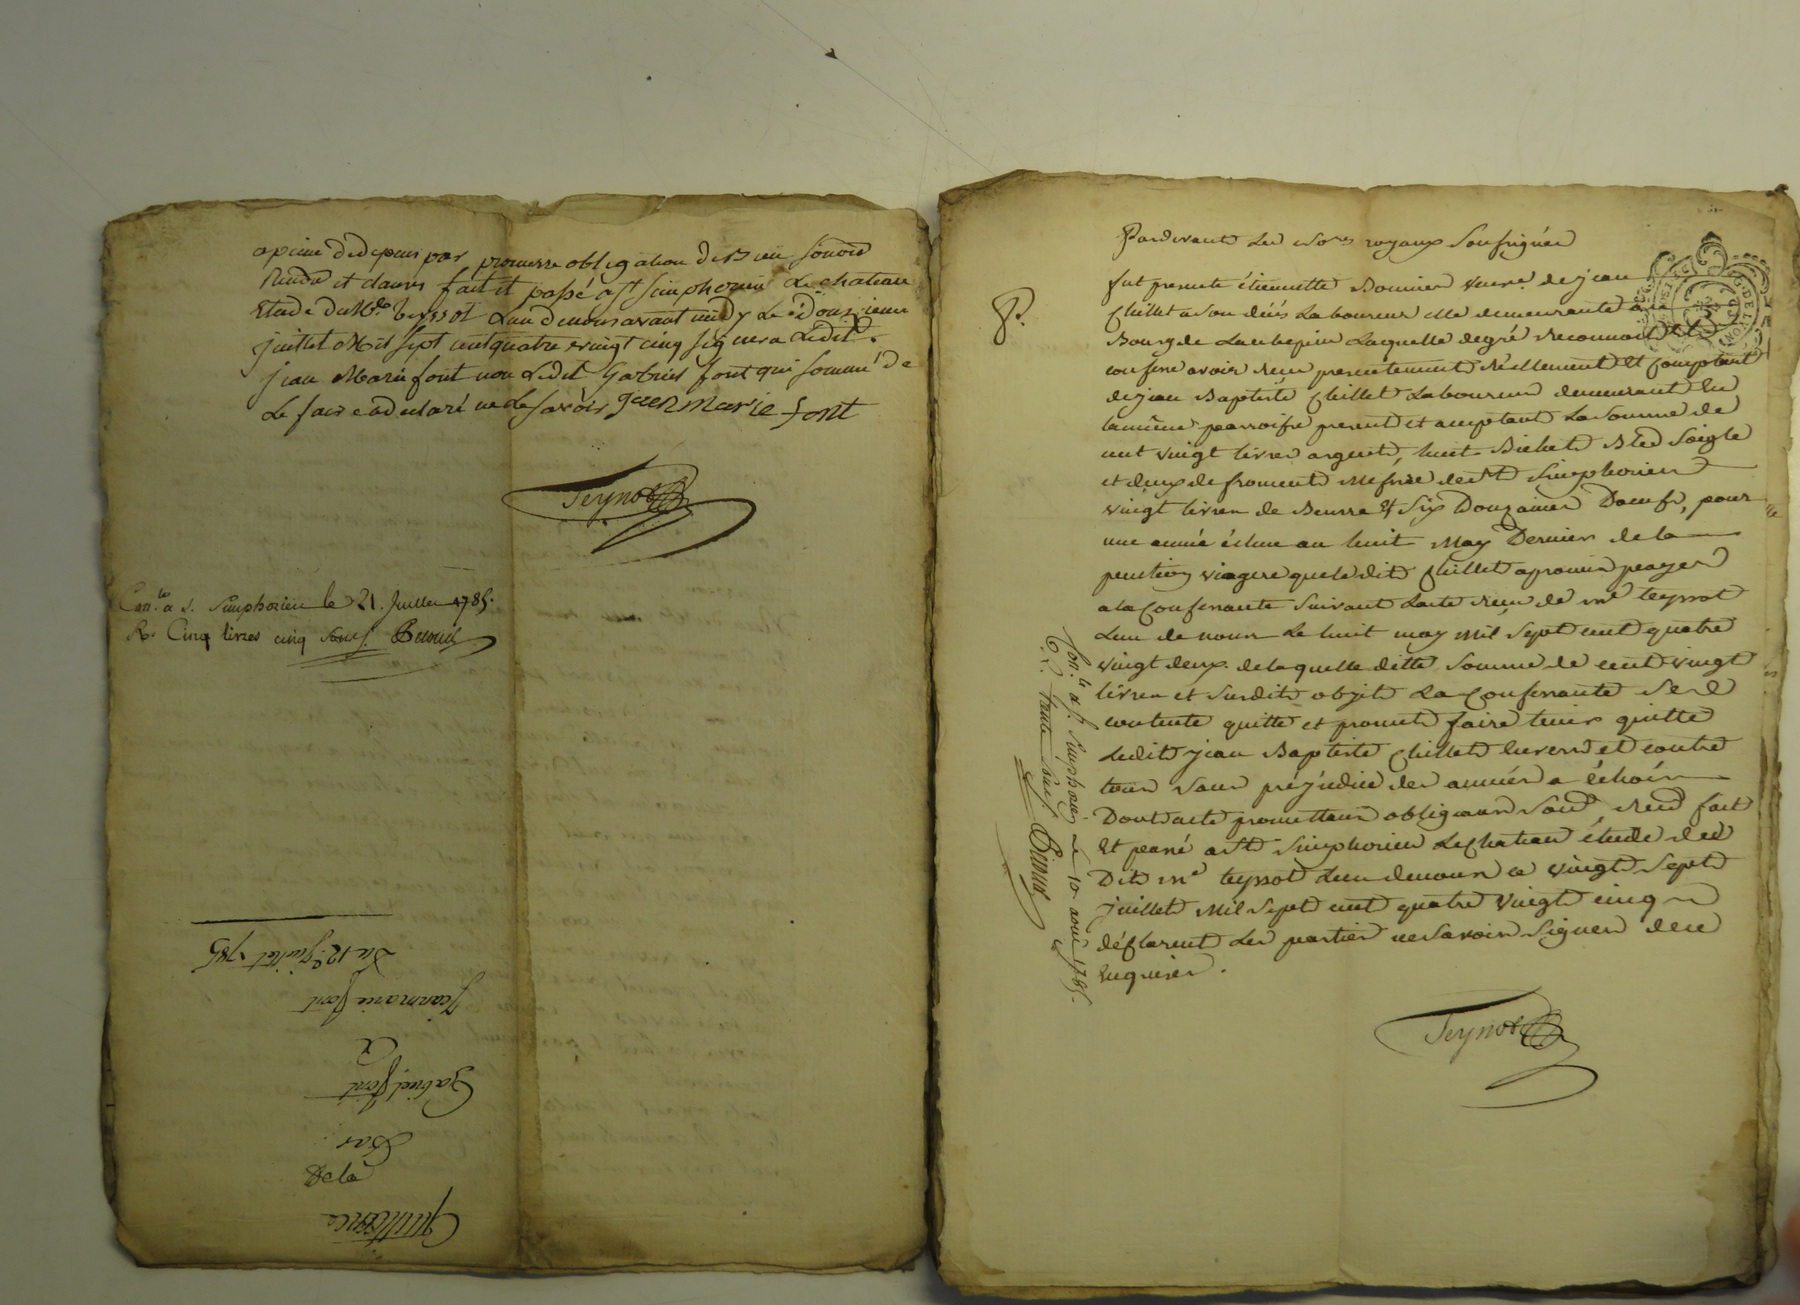 a peine de depens par promesse obligation de Bien soumis
Rends et clauses fait et passé a st simphorien Le chateau
Etude du Me teyssot L'un de nous avant midy Le douzieme
juillet Mil sept cent quatre vingt cinq signera Ledit
jean Marie font non Ledit Gabriel font qui sommé de
Le faire a declaré ne le savoir jean marie font
Teyssot
Con.le a s. simphorien le 21. Juillet 1785.
R. Cinq livres cinq sous Benoit
Quittance
De la
Par
Gabriel font
A
Jean marie font
Du 12e Juillet 1785
Pardevant Les No.res royaux soussignés
P.
fut presente étiennette Bonnier veuve de jean
Chillet a son décés Laboureur elle demeurante au
Bourg de Laubepin Laquelle de gré reconnoit et
confesse avoir reçu presentement réellement et comptant
de jean Baptiste Chillet Laboureur demeurant en
la même parroisse present et acceptant La somme de
cent vingt livres argent, huit Bichets Bled soigle
et deux de froment mesure de st simphorien
vingt livres de Beurre et six Douzaines D'oeufs, pour
une année échue au huit May Dernier de la
pension viagere que le dit Chillet a promis payer
a la Confessante suivant L'acte reçu de me teyssot
L'un de nous Le huit may Mil sept cent quatre
vingt deux de laquelle ditte somme de cent vingt
livres et susdits objets La Confessante se
contente quitte et promet faire tenir quitte
Ledit jean Baptiste Chillet envers et contre
tous sans préjudice des années a échoir
Dont acte promettans obligeans soum. Rend. fait
Et passé a st simphorien Le Chateau étude du
Dit me teyssot L'un de nous ce vingt sept
juillet Mil sept cent quatre vingt cinq
déclarent Les parties ne savoir signer de ce
Enquises.
Teyssot
Con.lé a s. simphorien le 10 aout 1785.
R. trente sous Benoit
G. DE LYON